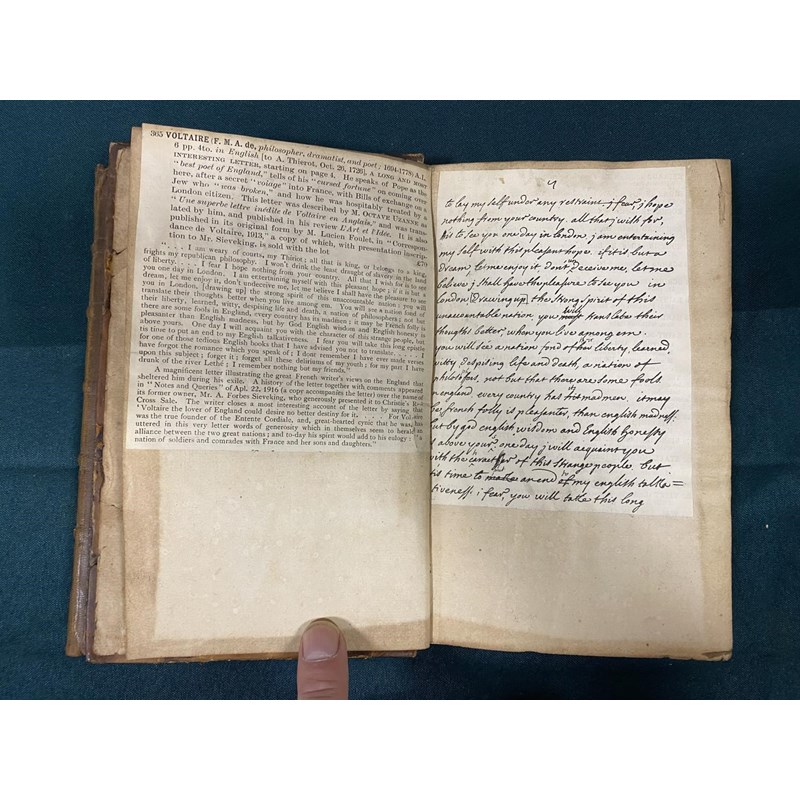 365 VOLTAIRE (F. M. A. de, philosopher, dramatist, and poet; 1694-1778) A.L.
6 pp. 4to. in English [to A. Thierot, Oct. 26, 1726], A LONG AND MOST
INTERESTING LETTER, starting on page 4. He speaks of Pope as the
"best poet of England," tells of his "cursed fortune" on coming over
here, after a secret "voiage" into France, with Bills of exchange on a
Jew who "was broken," and how he was hospitably treated by a
London citizen. This letter was described by M. OCTAVE UZANNE as
"Une superbe lettre inédite de Voltaire en Anglais," and was trans-
lated by him, and published in his review L'Art et l'Idée. It is also
published in its original form by M. Lucien Foulet, in "Correspon-
dance de Voltaire, 1913," a copy of which, with presentation inscrip-
tion to Mr. Sieveking, is sold with the lot
". . . . I am weary of courts, my Thiriot; all that is king, or belongs to a king,
frights my republican philosophy. I won't drink the least draught of slavery in the land
of liberty. . . . I fear I hope nothing from your country. All that I wish for is to see
you one day in London. I am entertaining myself with this pleasant hope; if it is but a
dream, let me enjoy it, don't undeceive me, let me believe I shall have the pleasure to see
you in London, [drawing up] the strong spirit of this unaccountable nation; you will
translate their thoughts better when you live among em. You will see a nation fond of
their liberty, learned, witty, despising life and death, a nation of philosophers; not but
there are some fools in England, every country has its madmen; it may be French folly is
pleasanter than English madness, but by God English wisdom and English honesty is
above yours. One day I will acquaint you with the character of this strange people, but
tis time to put an end to my English talkativeness. I fear you will take this long epistle
for one of those tedious English books that I have advised you not to translate. . . . I
have forgot the romance which you speak of; I dont remember I have ever made verses
upon this subject; forget it; forget all these deliriums of my youth; for my part I have
drunk of the river Lethé; I remember nothing but my friends."
A magnificent letter illustrating the great French writer's views on the England that
sheltered him during his exile. A history of the letter together with comments appeared
in "Notes and Queries" of Apl. 22, 1916 (a copy accompanies the letter) over the name of
its former owner, Mr. A. Forbes Sieveking, who generously presented it to Christie's Red
Cross Sale. The writer closes a most interesting account of the letter by saying that
"Voltaire the lover of England could desire no better destiny for it. . . . For Voltaire
was the true founder of the Entente Cordiale, and, great-hearted cynic that he was, he
uttered in this very letter words of generosity which in themselves seem to herald an
alliance between the two great nations; and to-day his spirit would add to his eulogy: 'a
nation of soldiers and comrades with France and her sons and daughters.'"
to lay my self under any restraine. j fear, j hope
nothing from your country. all that j wish for,
his to see you one day in london. j am entertaining
my self with this pleasant hope. if it is but a
dream, let me enjoy it don't undeceive me, let me
believe j shall have the pleasure to see you in
london Drawing up the strong spirit of this
unaccountable nation. you will translate their
thoughts better, when you live among em.
you will see a nation fond of their liberty, learned,
witty, despising life and death, a nation of
philosofers, not but that there are some fools
in england, every country has his madmen. it may
be, french folly is pleasanter, than english madness,
but by god english wisdom and English honesty
is above yours. one day j will acquaint you
with the caracter of this strange people, but
tis time to make an end of my english talka=
tiveness. i fear you will take this long